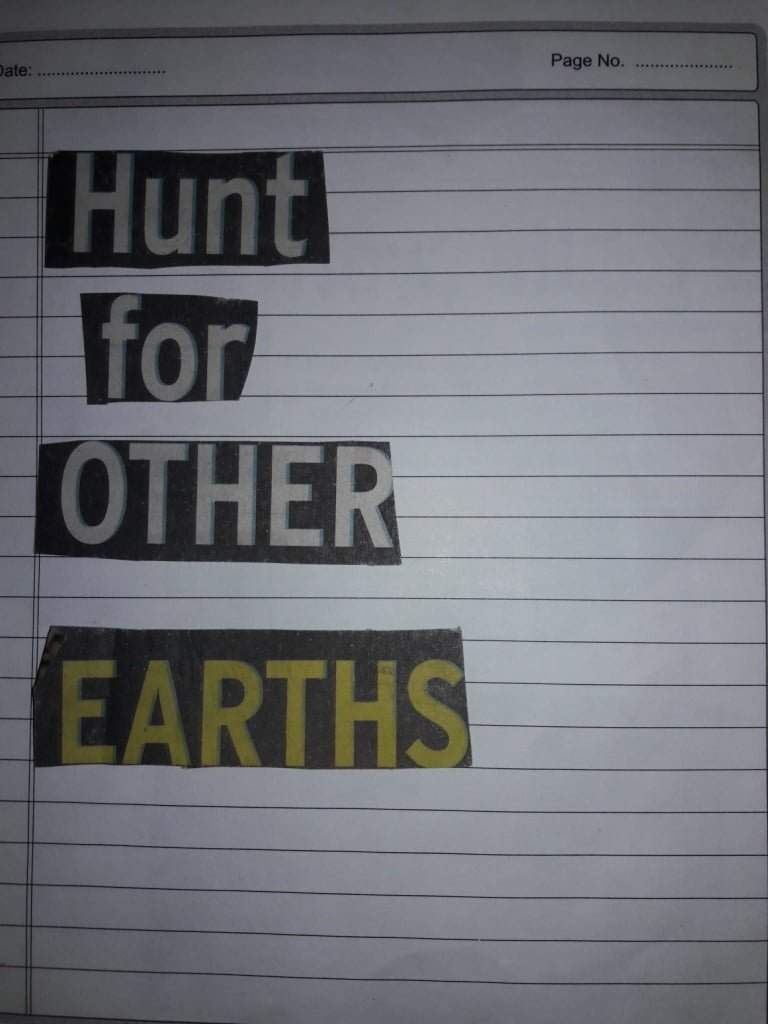 Date: ............................ Page No. .....................
Hunt
for
OTHER
EARTHS